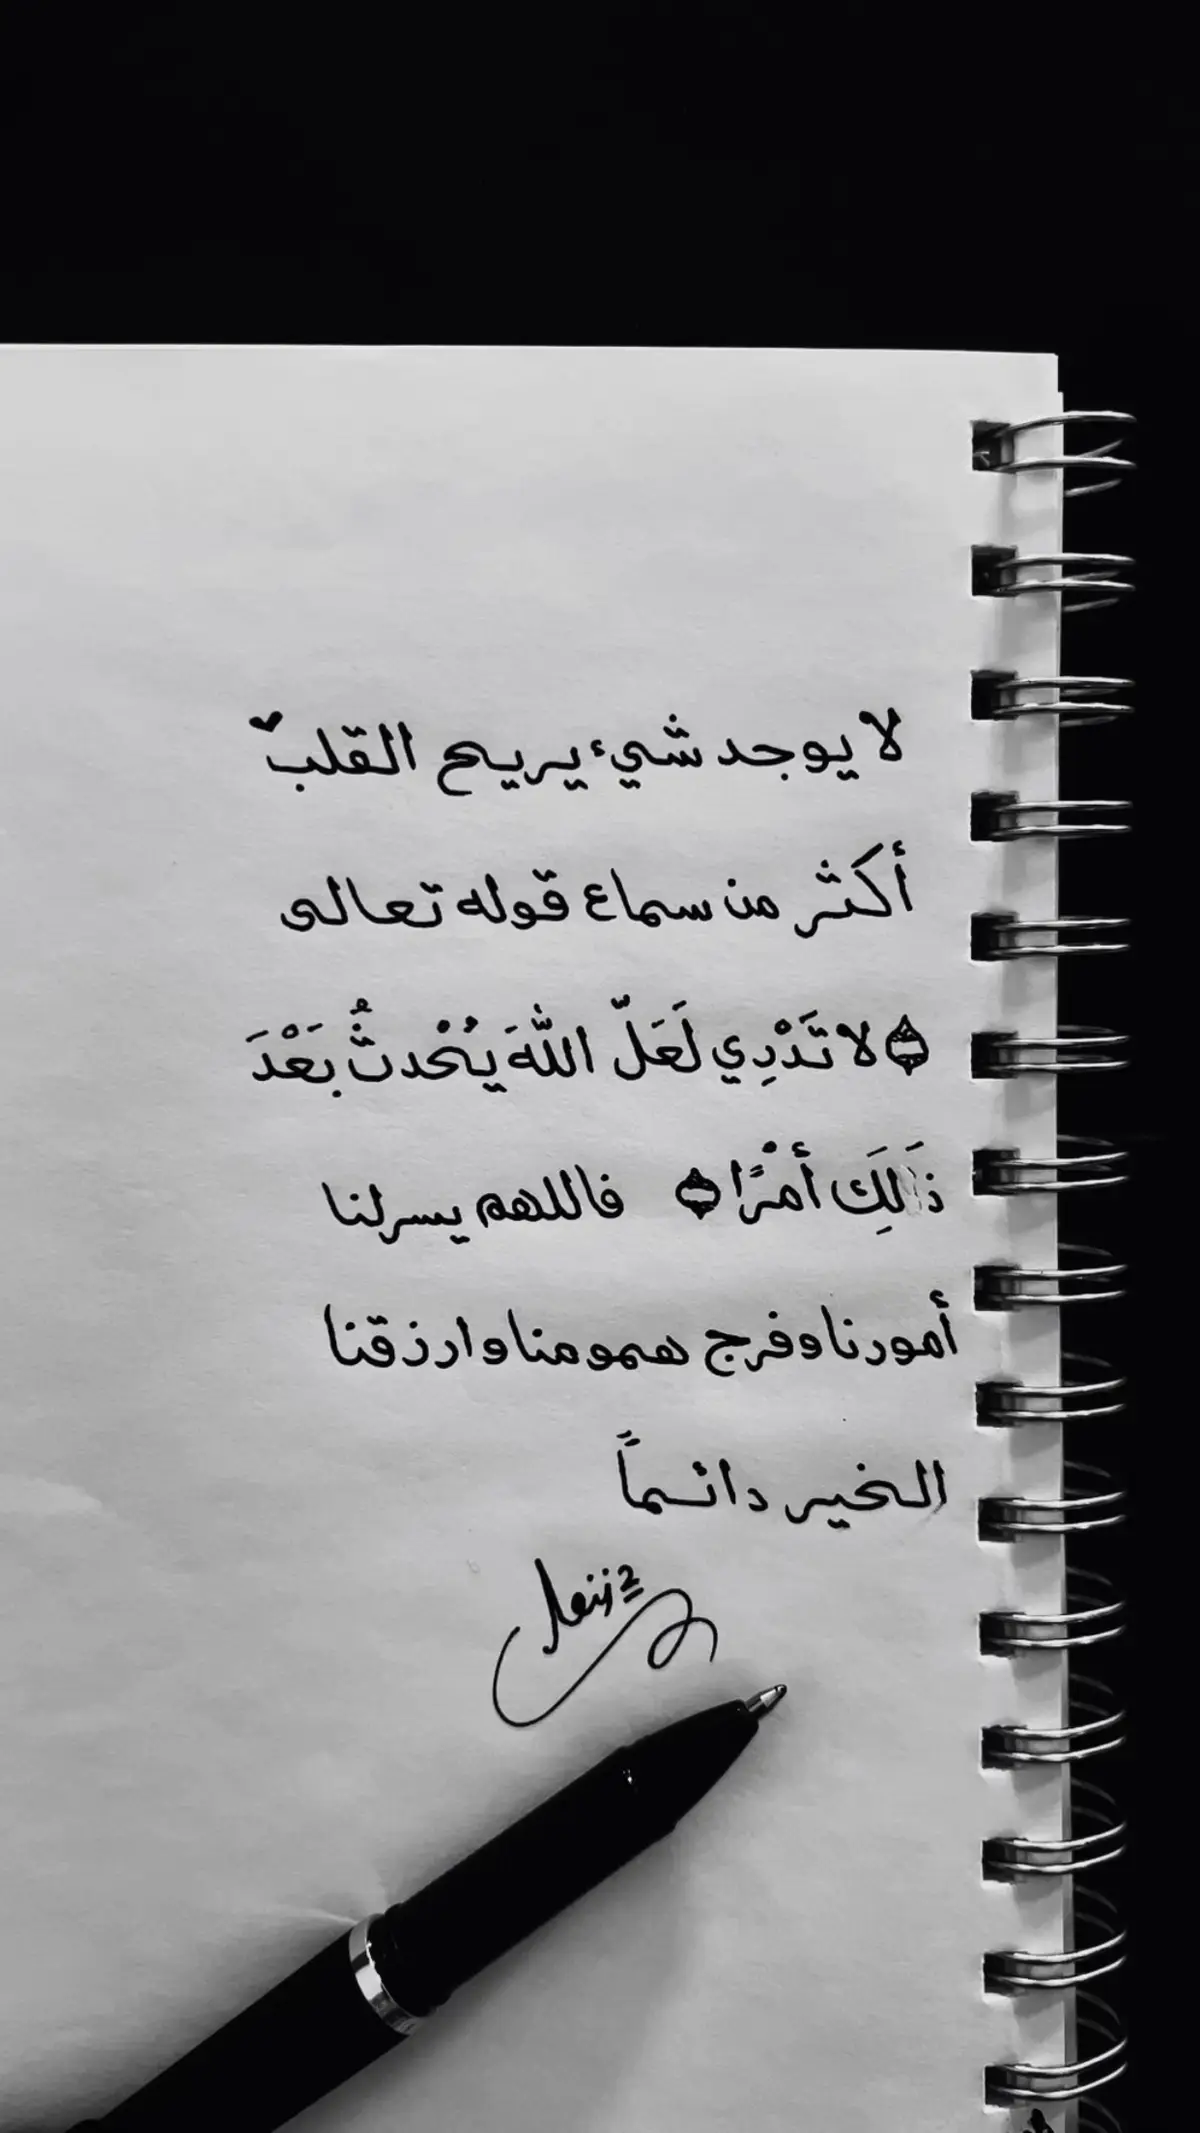 لا يوجد شيء يريح القلب
أكثر من سماع قوله تعالى
لا تَدْرِي لَعَلَّ اللَّهَ يُحْدِثُ بَعْدَ
ذَلِكَ أَمْرًا فاللهم يسر لنا
أمورنا وفرج همومنا وارزقنا
الخير دائماً